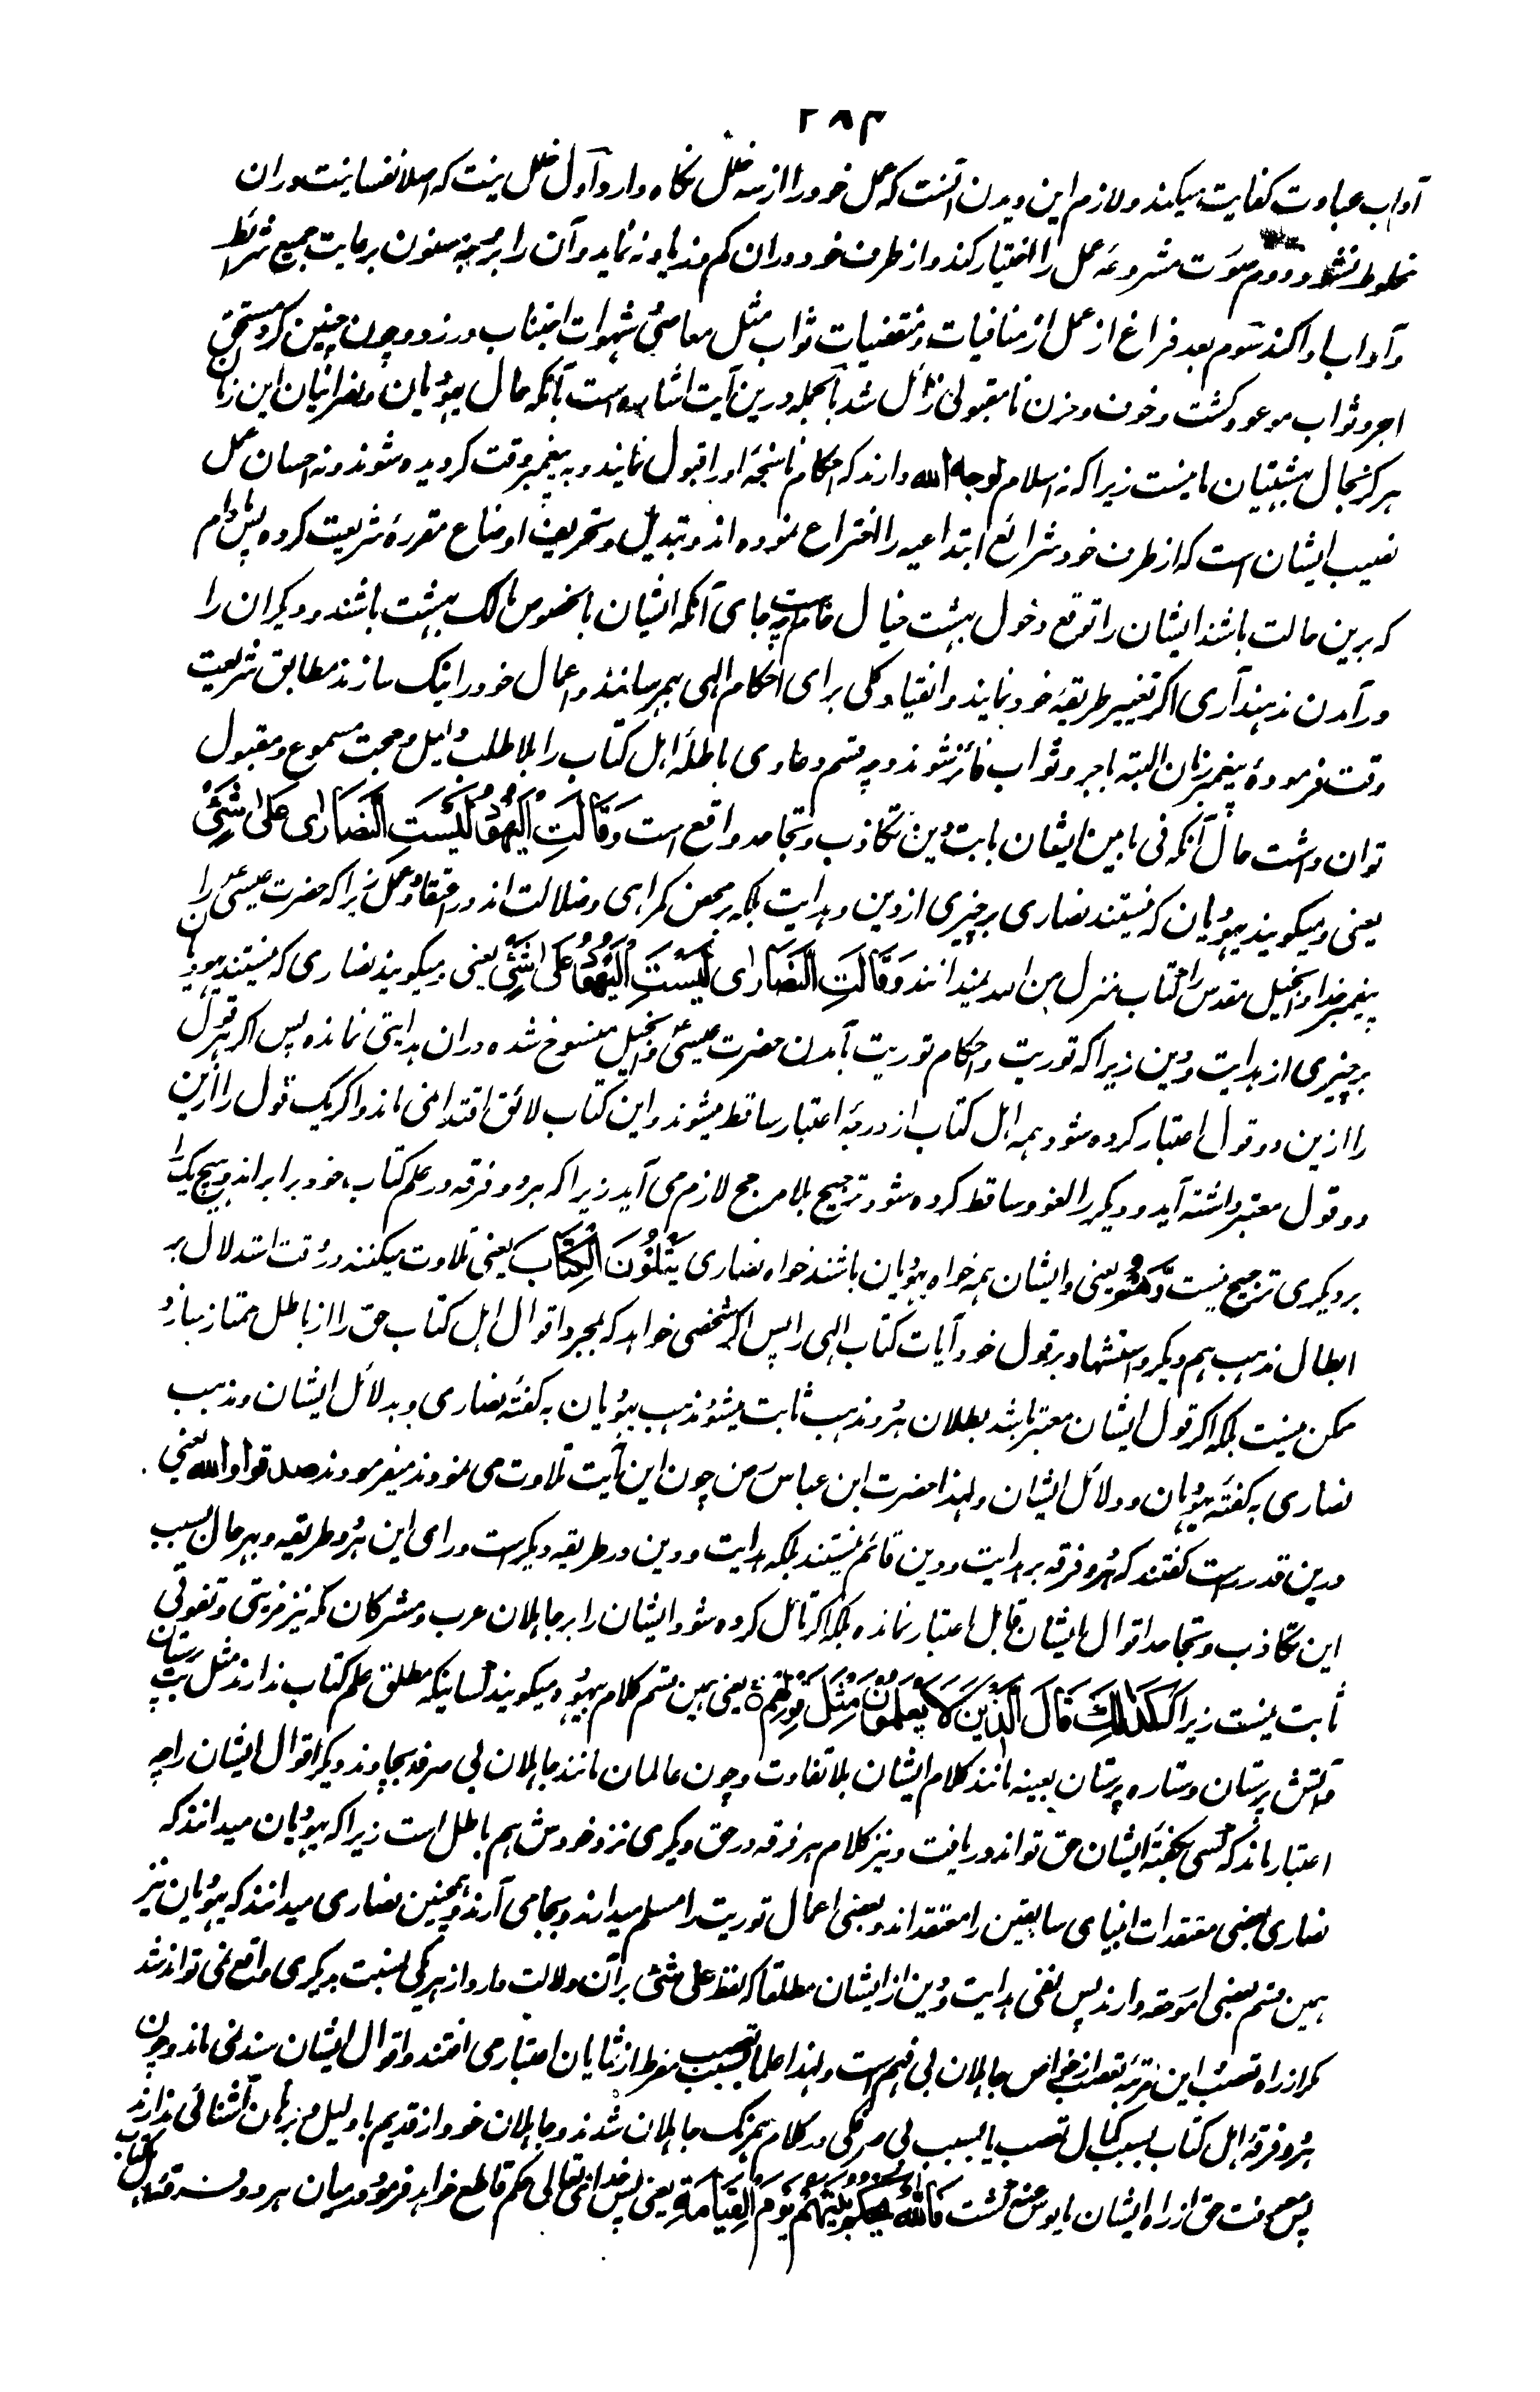 ۲۸۳
آداب عبادت کفایت میکند و لازم این دیدن آنست که عمل خود را از سه خلل نگاه دارد اول خلل نیت که اصلا نفسانیت دران
مخلوط نشود و دوم صورت مشروعه عمل را اختیار کند و از طرف خود دران کم و زیاده ننماید و آن را بر وجه مسنون برعایت جمیع شرائط
و آداب ادا کند سوم بعد فراغ از عمل از منافیات و منقضیات ثواب مثل معاصی شهوات اجتناب ورزد و چون چنین کرد مستحق
اجر و ثواب موعود گشت و خوف و حزن نامقبولی زائل شد بالجمله درین آیت اشاره است بآنکه حال یهودیان و نصرانیان این زمان
هرگز بحال بهشتیان نمی‌ماند زیرا که نه اسلام لوجه الله دارند که احکام ناسخه او را قبول نمایند و به پیغمبر وقت گرویده شوند و نه احسان عمل
نصیب ایشان است که از طرف خود شرائع ابتداعیه را اختراع نموده اند و تبدیل و تحریف اوضاع مقررهٔ شریعت کرده پس مادام
که برین حالت باشند ایشان را توقع دخول بهشت خیال خام است چه جای آنکه ایشان بالخصوص مالک بهشت باشند و دیگران را
درآمدن ندهند آری اگر تغییر طریقهٔ خود نمایند و انقیاد کلی برای احکام الهی بهم رسانند و اعمال خود را نیک سازند مطابق شریعت
وقت فرمودهٔ پیغمبر زمان البته باجر و ثواب فائز شوند و چه قسم دعاوی باطلهٔ اهل کتاب را بلا طلب دلیل و حجت مسموع و مقبول
توان داشت حال آنکه فی مابین ایشان بابت دین تکاذب و تجاحد واقع است وَقَالَتِ الْيَهُودُ لَيْسَتِ النَّصَارٰى عَلٰى شَيْءٍ
یعنی و میگویند یهودیان که نیستند نصاری بر چیزی از دین و هدایت بلکه بر محض گمراهی و ضلالت اند در اعتقاد و عمل زیرا که حضرت عیسی را
پیغمبر خدا و انجیل مقدس را کتاب منزل من الله نمیدانند وَقَالَتِ النَّصَارٰى لَيْسَتِ الْيَهُودُ عَلٰى شَيْءٍ یعنی و میگویند نصاری که نیستند یهودیان
بر چیزی از هدایت و دین زیرا که توریت و احکام توریت بآمدن حضرت عیسی و انجیل منسوخ شده دران هدایتی نمانده پس اگر هر قول
را ازین دو قول اعتبار کرده شود همه اهل کتاب از درجهٔ اعتبار ساقط میشوند و این کتاب لائق اقتدا نمی ماند و اگر یک قول را ازین
دو قول معتبر داشته آید و دیگر را لغو و ساقط کرده شود ترجیح بلا مرجح لازم می آید زیرا که هر دو فرقه در علم کتاب خود برابر اند و هیچ یک را
بر دیگری ترجیح نیست وَهُمْ یعنی و ایشان همه خواه یهودیان باشند خواه نصاری يَتْلُونَ الْكِتَابَ یعنی تلاوت میکنند در وقت استدلال بر
ابطال مذهب هم دیگر و استشهاد بر قول خود آیات کتاب الهی را پس اگر شخصی خواهد که بمجرد اقوال اهل کتاب حق را از باطل ممتاز سازد
ممکن نیست بلکه اگر قول ایشان معتبر باشد بطلان هر دو مذهب ثابت میشود مذهب یهودیان به گفتهٔ نصاری و بدلائل ایشان و مذهب
نصاری به گفتهٔ یهودیان و دلائل ایشان و لهذا حضرت ابن عباس رض چون این آیت تلاوت می نمودند میفرمودند صدقوا والله یعنی
درین قدر راست گفتند که هر دو فرقه بر هدایت و دین قائم نیستند بلکه هدایت و دین در طریقه دیگر است ورای این هر دو طریقه و بهر حال بسبب
این تکاذب و تجاحد اقوال ایشان قابل اعتبار نمانده بلکه اگر تامل کرده شود ایشان را بر جاهلان عرب و مشرکان مکه نیز مزیتی و تفوقی
ثابت نیست زیرا که كَذٰلِكَ قَالَ الَّذِينَ لَا يَعْلَمُونَ مِثْلَ قَوْلِهِمْ یعنی همین قسم کلام بیهوده میگویند کسانیکه مطلق علم کتاب ندارند مثل بت پرستان
و آتش پرستان و ستاره پرستان بعینه مانند کلام ایشان بلا تفاوت و چون عالمان مانند جاهلان بی صرفه بجاوند دیگر اقوال ایشان را چه
اعتبار ماند که کسی بگفتهٔ ایشان حق تواند دریافت و نیز کلام هر فرقه در حق دیگری نزد خودش هم باطل است زیرا که یهودیان میدانند که
نصاری بعضی معتقدات انبیای سابقین را معتقد اند و بعضی اعمال توریت را مسلم میدارند و بجا می آرند و همچنین نصاری میدانند که یهودیان نیز
همین قسم بعضی امور حقه دارند پس نفی هدایت و دین از ایشان مطلقا که لفظ علی شئ بر آن دلالت دارد از هر یکی نسبت بدیگری واقع نمی تواند شد
مگر از راه تعصب این مرتبه تعصب از خواص جاهلان بی فهم است و لهذا علما بسبب تعصب مفرط از پایان اعتبار می افتند و اقوال ایشان سند نمی ماند و چون
هر دو فرقهٔ اهل کتاب بسبب کمال تعصب یا بسبب بی صرفگی در کلام همرنگ جاهلان شدند و جاهلان خود از قدیم با دلیل و برهان آشنائی ندارند
پس معرفت حق از راه ایشان مایوس عنه گشت فَاللّٰهُ يَحْكُمُ بَيْنَهُمْ يَوْمَ الْقِيَامَةِ یعنی پس خدای تعالی حکم قاطع خواهد فرمود درمیان هر دو فرقهٔ اهل کتاب